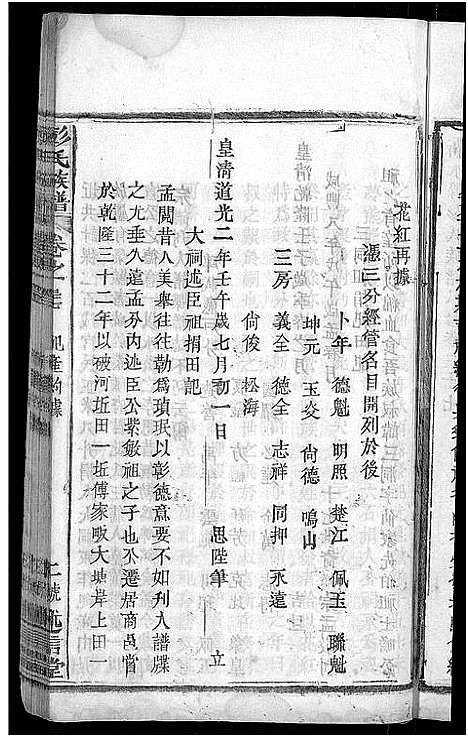 花紅再據
憑三分經管名目開列於後
卜年 德魁 明照 楚江 佩玉 聯魁
坤元 玉炎 尙德 鳴山
三房 義全 德全 志祥 同押 永遠
尙俊 松海
皇清道光二年壬午歲七月初一日 思陞筆 立
大祠述臣祖捐田記
孟聞昔人美舉往往勒爲瑱珉以彰德意要不如刋入譜牒
之尤垂久遠孟分內述臣公紫敏祖之子也公遷居商邑嘗
於乾隆三十二年以破河坵田一坵傅家畈大塘岸上田一
彭氏族譜 卷之 祀產約據 二號 光裕堂